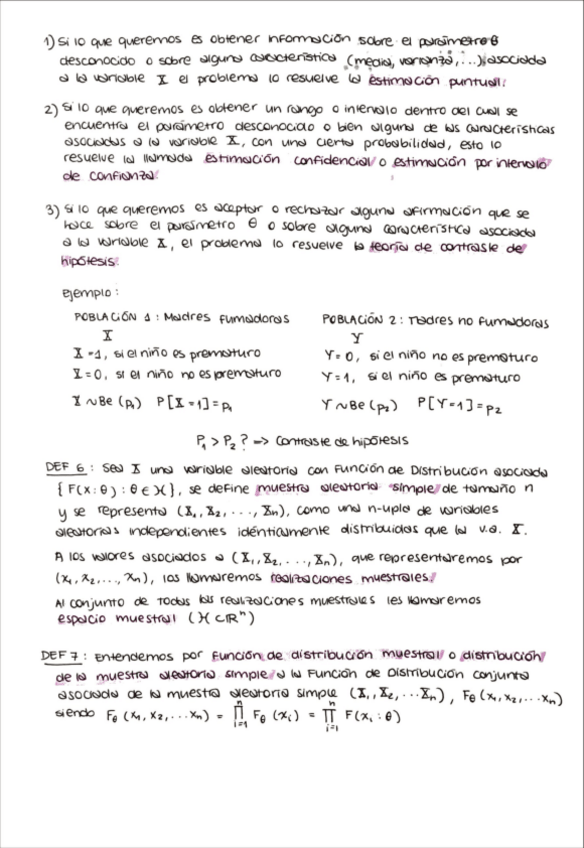 1) Si lo que queremos es obtener información sobre el parámetro θ
desconocido o sobre alguna característica (media, varianza, ...) asociada
a la variable X el problema lo resuelve la estimación puntual.
2) Si lo que queremos es obtener un rango o intervalo dentro del cual se
encuentra el parámetro desconocido o bien alguna de las características
asociadas a la variable X, con una cierta probabilidad, esto lo
resuelve la llamada estimación confidencial o estimación por intervalo
de confianza.
3) Si lo que queremos es aceptar o rechazar alguna afirmación que se
hace sobre el parámetro θ o sobre alguna característica asociada
a la variable X, el problema lo resuelve la teoría de contraste de
hipótesis.
Ejemplo:
POBLACIÓN 1: Madres fumadoras
X
X=1, si el niño es prematuro
X=0, si el niño no es prematuro
X ~ Be (p₁) P[X=1]=p₁
POBLACIÓN 2: Madres no fumadoras
Y
Y=0, si el niño no es prematuro
Y=1, si el niño es prematuro
Y ~ Be (p₂) P[Y=1]=p₂
P₁ > P₂? => Contraste de hipótesis
DEF 6: Sea X una variable aleatoria con Función de Distribución asociada
{F(x:θ): θ ∈ H}, se define muestra aleatoria simple de tamaño n
y se representa (X₁, X₂, ..., Xn), como una n-upla de variables
aleatorias independientes idénticamente distribuidas que la v.a. X.
A los valores asociados a (X₁, X₂, ..., Xn), que representaremos por
(x₁, x₂, ..., xn), las llamaremos realizaciones muestrales.
Al conjunto de todas las realizaciones muestrales les llamaremos
espacio muestral (H ⊂ ℝⁿ)
DEF 7: Entendemos por Función de distribución muestral o distribución
de la muestra aleatoria simple a la Función de Distribución conjunta
asociada de la muestra aleatoria simple (X₁, X₂, ... Xn), Fθ (x₁, x₂, ... xn)
siendo Fθ (x₁, x₂, ... xn) = ∏ⁿᵢ₌₁ Fθ (xᵢ) = ∏ⁿᵢ₌₁ F(xᵢ:θ)